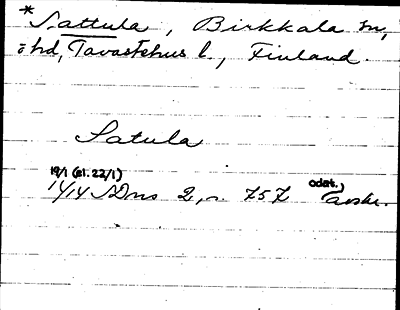 *Sattula, Birkkala sn,
ö hd, Tavastehus l., Finland.
Satula
19/1 (el. 22/1)
1414 SDns 2, n. 757 odat., avskr.